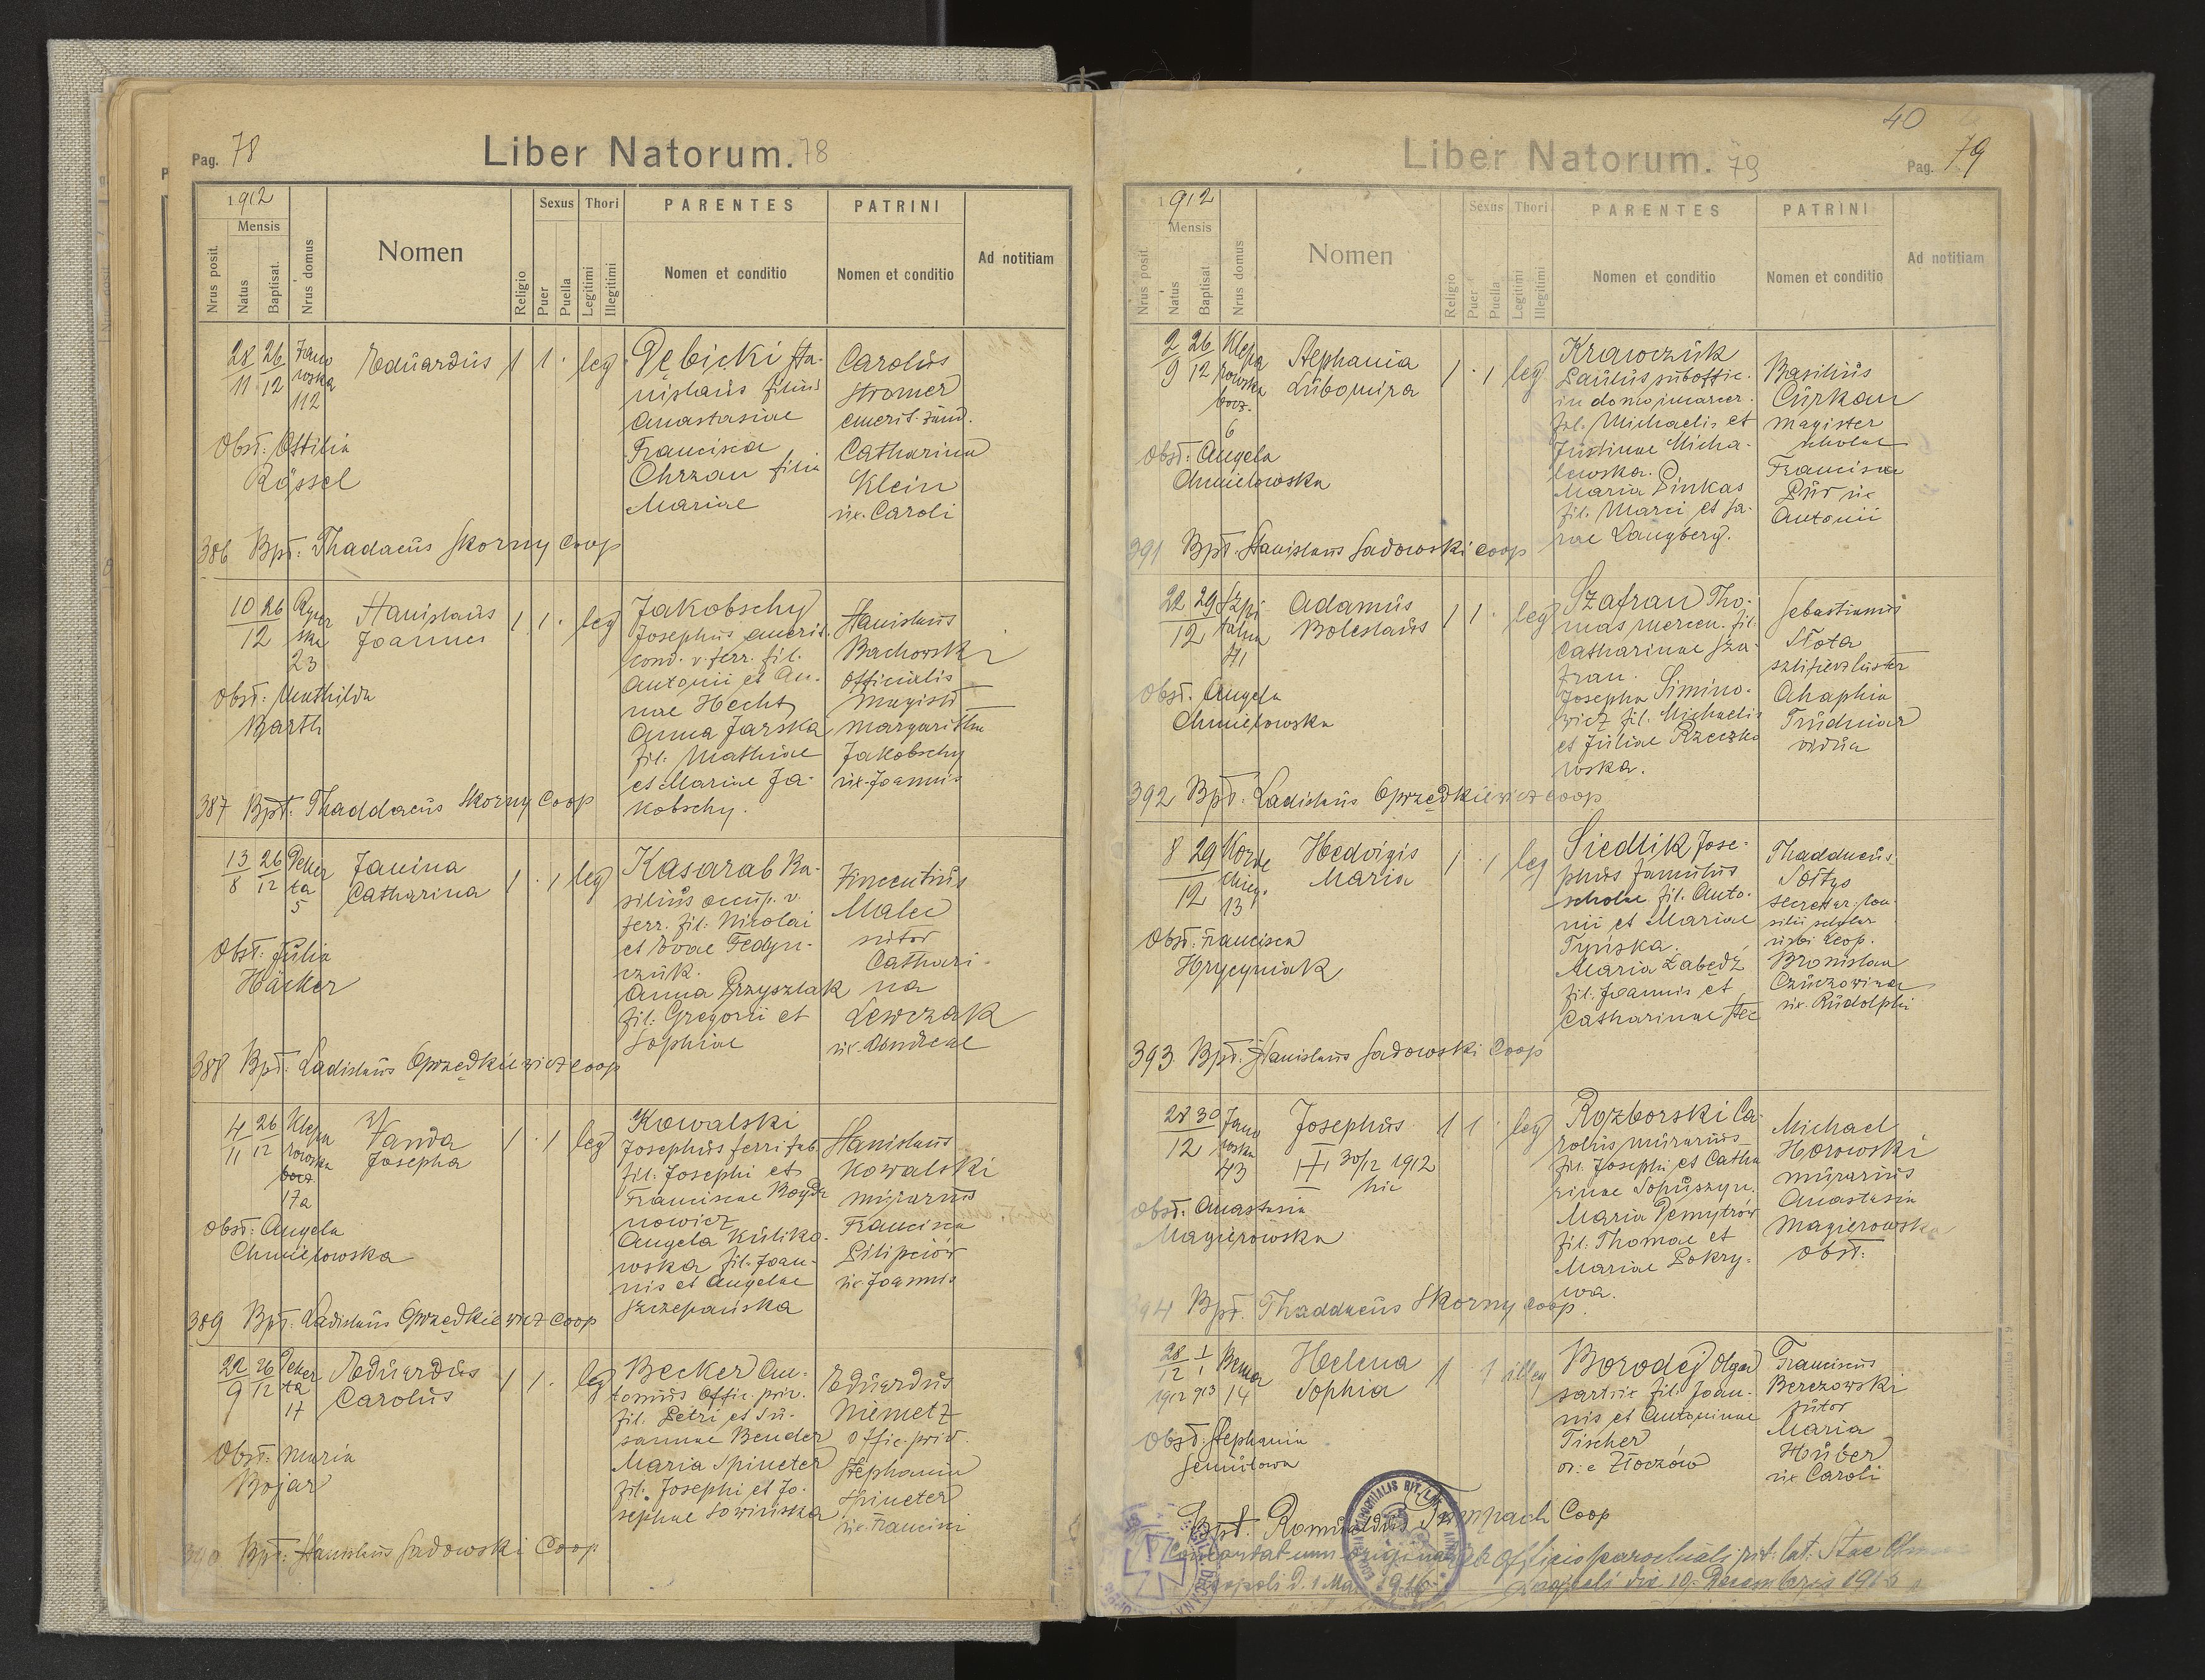 Pag. 78
Liber Natorum. 78
1912
Mensis
Nrus posit.
Natus
Baptisat.
Nrus domus
Nomen
Religio
Sexus
Puer
Puella
Thori
Legitimi
Illegitimi
PARENTES
Nomen et conditio
PATRINI
Nomen et conditio
Ad notitiam
28 26 Jano
11 12 wska
112
Eduardus
1 1 · leg
Dębicki Sta-
nislaus filius
Anastasiae
Francisca
Chrzan filia
Mariae
Carolus
Stromer
emerit.
Catharina
Klein
ux. Caroli
Obst: Ottilia
Rössel
386 Bpt: Thadaeus Skorny Coop
10 26
12
23
Stanislaus
Joannes
1 1 · leg
Jakobschy
Josephus emerit.
cond. v. ferr. fil.
Antonii et An-
nae Hecht
Anna Jarska
fil. Mathiae
et Mariae Ja-
kobschy.
Stanislaus
Bachowski
officialis
magistr
Margaritha
Jakobschy
ux. Joannis
Obst: Mathilda
Barth
387 Bpt: Thaddaeus Skorny Coop
13 26 Peker
8 12 ta
5
Janina
Catharina
1 · 1 leg
Kasarab Ba-
silius occup. v.
ferr. fil: Nikolai
et Evae Fedyn-
czuk.
Anna Przyszlak
fil: Gregorii et
Sophiae
Vincentius
Malec
sutor
Cathari-
na
Lewczak
ux. Andreae
Obst: Julia
Häcker
388 Bpt: Ladislaus Oprzędkiewicz Coop
4 26 Klepa
11 12 rowska
bocz
17a
Vanda
Josepha
1 · 1 leg
Kowalski
Josephus ferri fab.
fil. Josephi et
Franciscae Bogda
nowicz
Angela Kuliko-
wska fil. Joan-
nis et Angelae
Szczepańska
Stanislaus
Kowalski
murarius
Francisca
Pilipciów
ux. Joannis
Obst: Angela
Chmielowska
389 Bpt: Ladislaus Oprzędkiewicz Coop
22 26 Peker
9 12 ta
17
Eduardus
Carolus
1 1 · leg
Becker An-
tonius offic. priv.
fil. Petri et Su-
sannae Bender
Maria Spineter
fil. Josephi et Jo-
sephae Sowińska
Eduardus
Niemetz
offic. priv.
Stephania
Spineter
ux. Francisci
Obst: Maria
Bojar
390 Bpt: Stanislaus Sadowski Coop
40
Liber Natorum. 79
Pag. 79
1912
Mensis
Nrus posit.
Natus
Baptisat.
Nrus domus
Nomen
Religio
Sexus
Puer
Puella
Thori
Legitimi
Illegitimi
PARENTES
Nomen et conditio
PATRINI
Nomen et conditio
Ad notitiam
2 26 Klepa
9 12 rowska
bocz.
6
Stephania
Lubomira
1 · 1 leg
Krawczuk
Paulus suboffic.
in domo
fil. Michaelis et
Justinae Micha-
lewska.
Maria Pinkas
fil. Marci et Sa-
rae Langberg.
Basilius
Curkan
magister
scholae
Francisca
ux
Antonii
Obst: Angela
Chmielowska
391 Bpt: Stanislaus Sadowski Coop
22 29 Szpi
12 talna
41
Adamus
Boleslaus
1 1 · leg
Szafran Tho-
mas mercen. fil.
Catharinae Sza-
fran.
Josepha Simino-
wicz fil. Michaelis
et Juliae Rzeczko
wska.
Sebastianus
Słota
Ahaphia
Trudniar
vidua
Obst: Angela
Chmielowska
392 Bpt: Ladislaus Oprzędkiewicz Coop
8 29 Korde
12 ckieg.
13
Hedvigis
Maria
1 · 1 leg
Siedlik Jose-
phus famulus
scholae fil. Anto-
nii et Mariae
Tyniska.
Maria Łabędź
fil: Joannis et
Catharinae Stec
Thaddaeus
Sołtys
secretar. con-
silii scholar
urbi Leop.
Bronislava
ux. Rudolphi
Obst: Francisca
Hrycyniak
393 Bpt: Stanislaus Sadowski Coop
28 30 Jano
12 wska
43
Josephus
30/12 1912
hic
1 1 · leg
Rozborski Ca-
rolus murarius
fil. Josephi et Catha
rinae Sopuszyn.
Maria Demytrów
fil: Thomae et
Mariae Pokry-
wa.
Michael
Horowski
murarius
Anastasia
Magierowska
obst:
Obst: Anastasia
Magierowska
394 Bpt. Thaddaeus Skorny Coop.
28 1 Bema
12 1
1912 913 14
Helena
Sophia
1 · 1 illeg
Borodej Olga
sartrix fil. Joan-
nis et Antoninae
Tischer
or: e Złoczów
Franciscus
Berezowski
sutor
Maria
Huber
ux Caroli
Obst: Stephania
Bpt. Romualdus Coop
Concordat cum originali
Ab officio parochiali rit: lat:
Leopoli d. 1 1916
Leopoli die 19 Decembris 1916